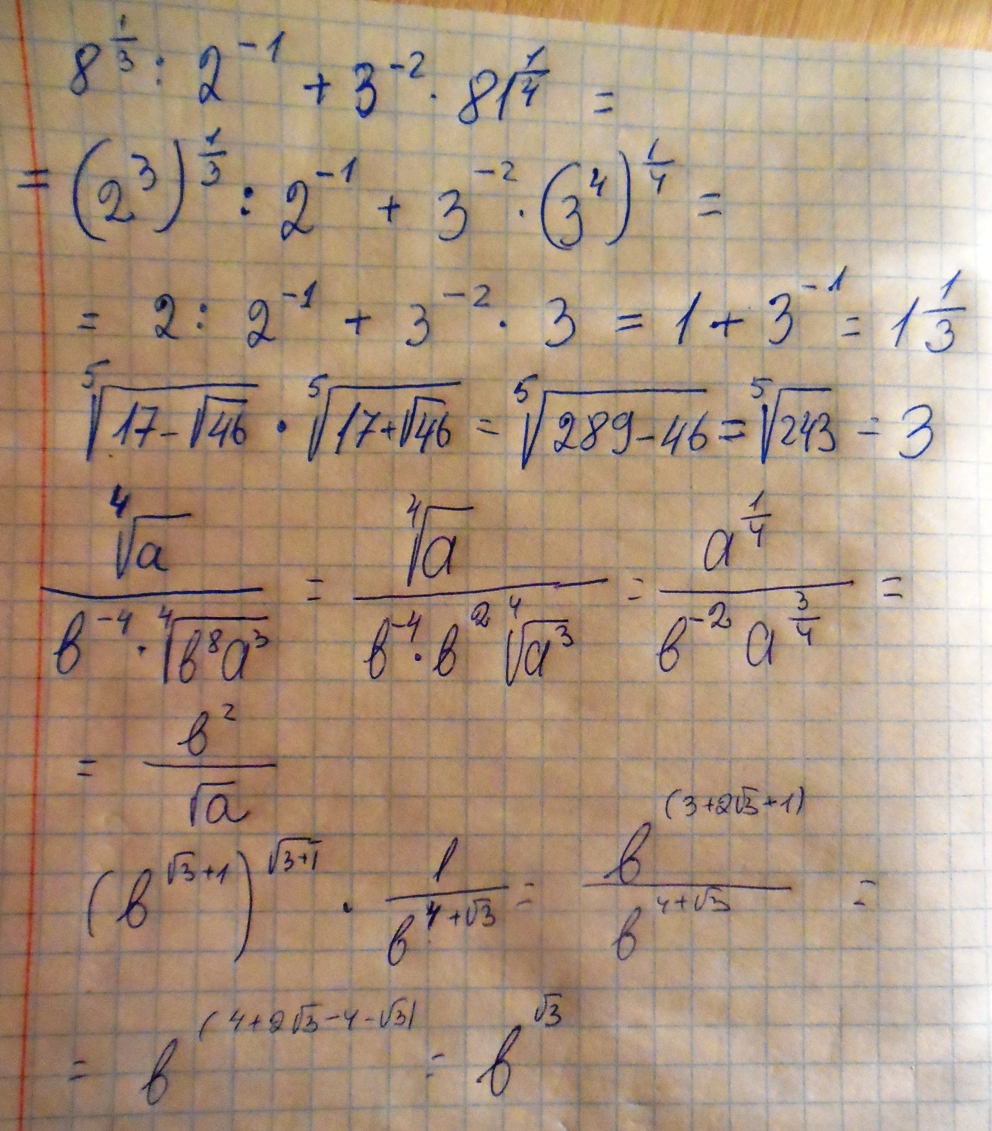 8^{\frac{1}{3}} : 2^{-1} + 3^{-2} · 81^{\frac{1}{4}} =
= (2^3)^{\frac{1}{3}} : 2^{-1} + 3^{-2} · (3^4)^{\frac{1}{4}} =
= 2 : 2^{-1} + 3^{-2} · 3 = 1 + 3^{-1} = 1\frac{1}{3}
\sqrt[5]{17-\sqrt{46}} · \sqrt[5]{17+\sqrt{46}} = \sqrt[5]{289-46} = \sqrt[5]{243} = 3
\frac{\sqrt[4]{a}}{b^{-4} · \sqrt[4]{b^8a^3}} = \frac{\sqrt[4]{a}}{b^{-4} · b^2 \sqrt[4]{a^3}} = \frac{a^{\frac{1}{4}}}{b^{-2} a^{\frac{3}{4}}} =
= \frac{b^2}{\sqrt{a}}
(b^{\sqrt{3}+1})^{\sqrt{3+1}} · \frac{1}{b^{4+\sqrt{3}}} = \frac{b^{(3+2\sqrt{3}+1)}}{b^{4+\sqrt{3}}} =
= b^{(4+2\sqrt{3}-4-\sqrt{3})} = b^{\sqrt{3}}